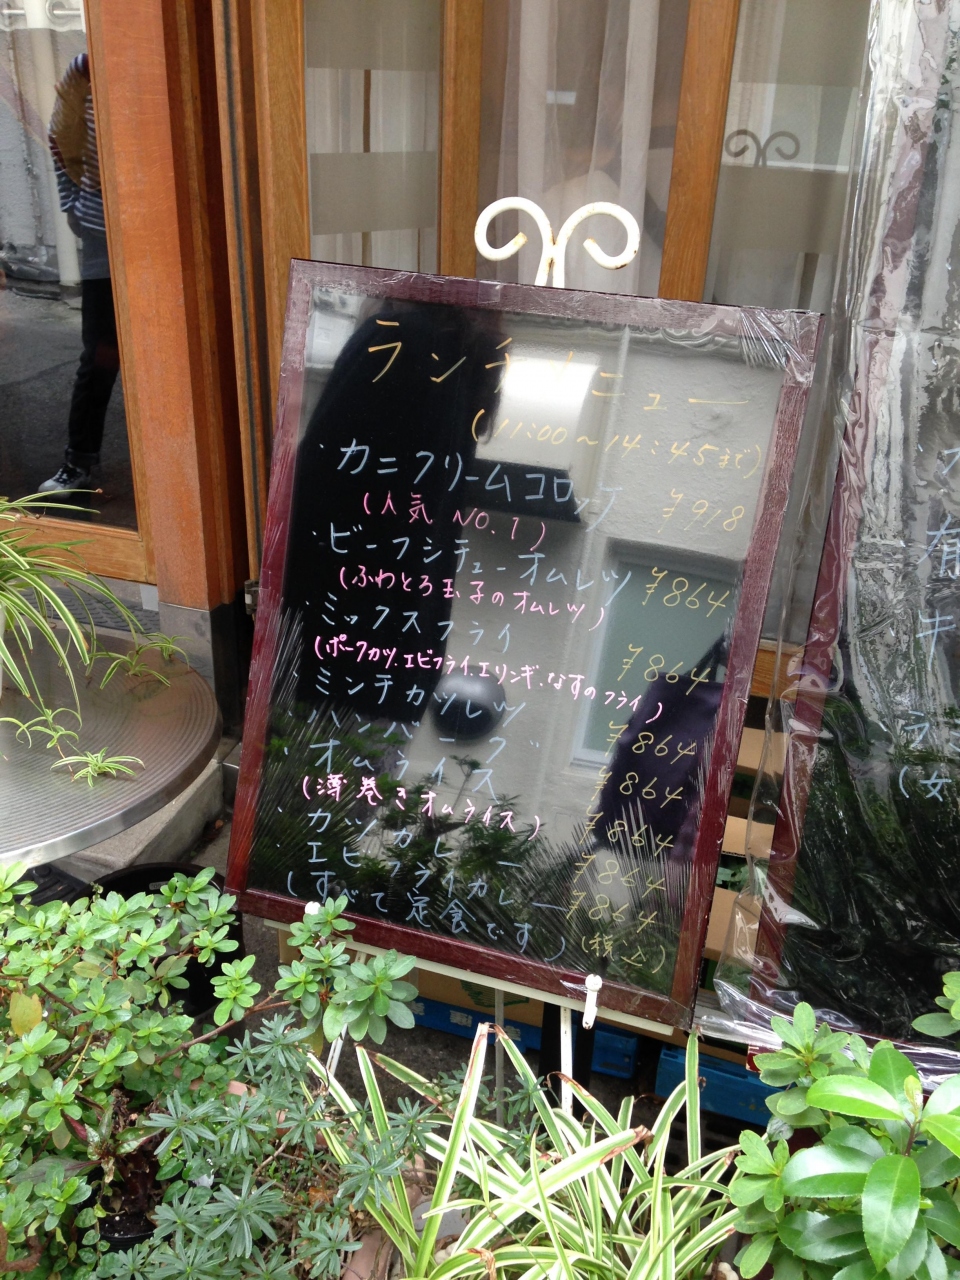 ランチメニュー
(11:00～14:45まで)
・カニクリームコロッケ ¥918
(人気 NO.1)
・ビーフシチューオムレツ ¥864
(ふわとろ玉子のオムレツ)
・ミックスフライ ¥864
(ポークカツ、エビフライ、エリンギ、なすのフライ)
・ミンチカツレツ ¥864
・ハンバーグ ¥864
・オムライス ¥864
(薄巻きオムライス)
・カツカレー ¥864
・エビフライカレー ¥864
(すべて定食です) (税込)